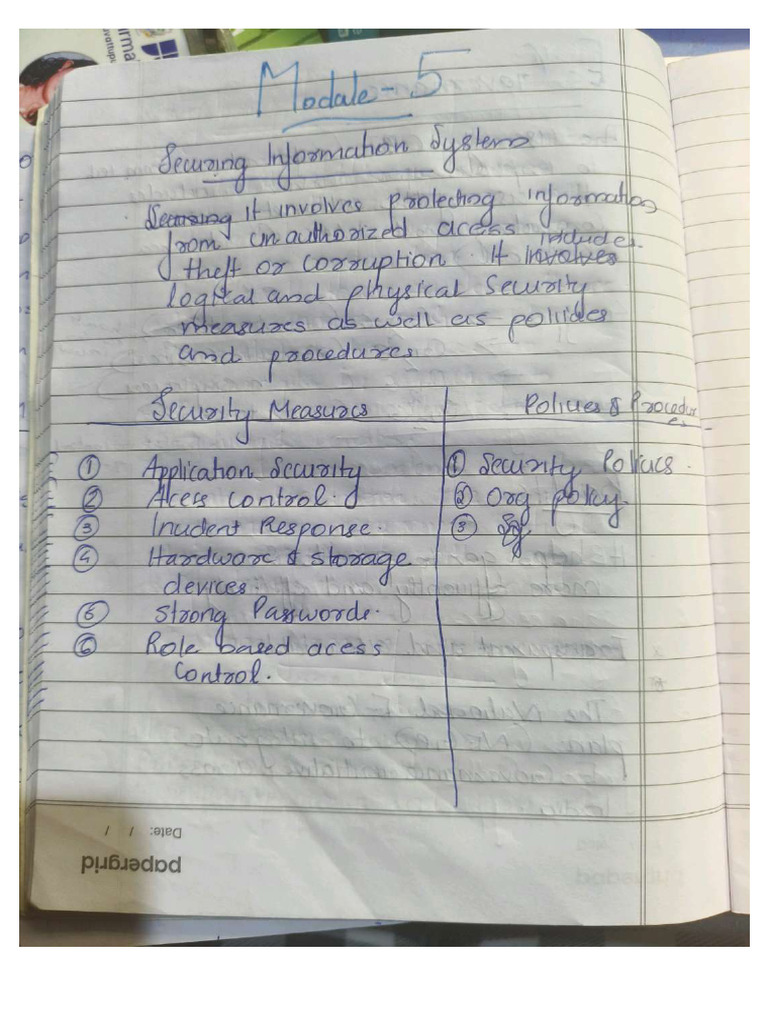 Module-5
Securing Information Systems
It involves protecting information
from unauthorized acess includes
theft or corruption. It involves
logital and physical Security
measures as well as policides
and procedures
Security Measures
Policies & Procedures
① Application Security
② Acess control.
③ Incident Response.
④ Hardware & storage
devices.
⑤ Strong Passwords.
⑥ Role based acess
Control.
① Security Policies.
② Org policy.
③
Date: / /
papergrid